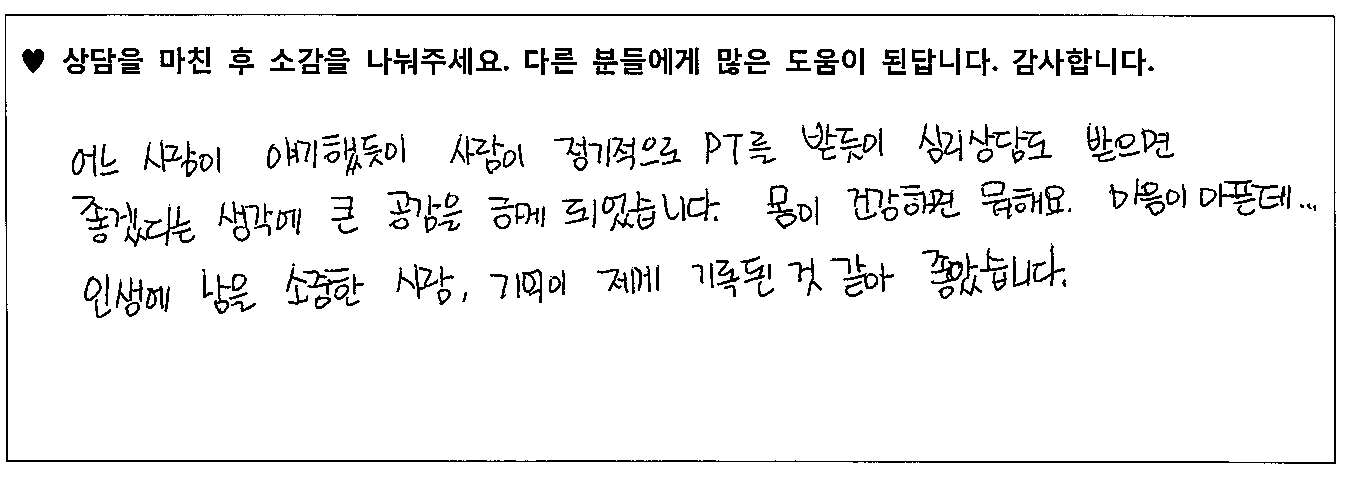 ♥ 상담을 마친 후 소감을 나눠주세요. 다른 분들에게 많은 도움이 된답니다. 감사합니다.
어느 사람이 얘기했듯이 사람이 정기적으로 PT를 받듯이 심리상담도 받으면
좋겠다는 생각에 큰 공감을 하게 되었습니다. 몸이 건강하면 뭐해요. 마음이 아픈데...
인생에 남을 소중한 사람, 기억이 제게 기록된 것 같아 좋았습니다.